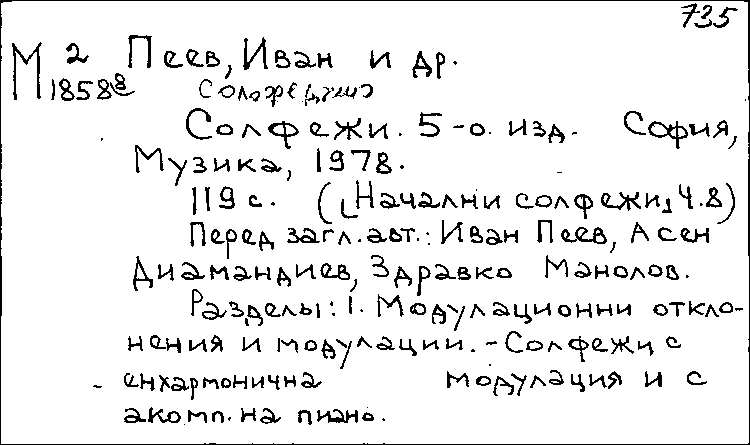 735
М 2 Пеев, Иван и др.
18588
Солфежи. 5-о. изд. София,
Музика, 1978.
119 с. (⌊Начални солфежи⌋ Ч.8)
Перед загл. авт.: Иван Пеев, Асен
Диамандиев, Здравко Манолов.
Разделы: 1. Модулационни откло-
нения и модулации. - Солфежи с
енхармонична модулация и с
акомп. на пиано.